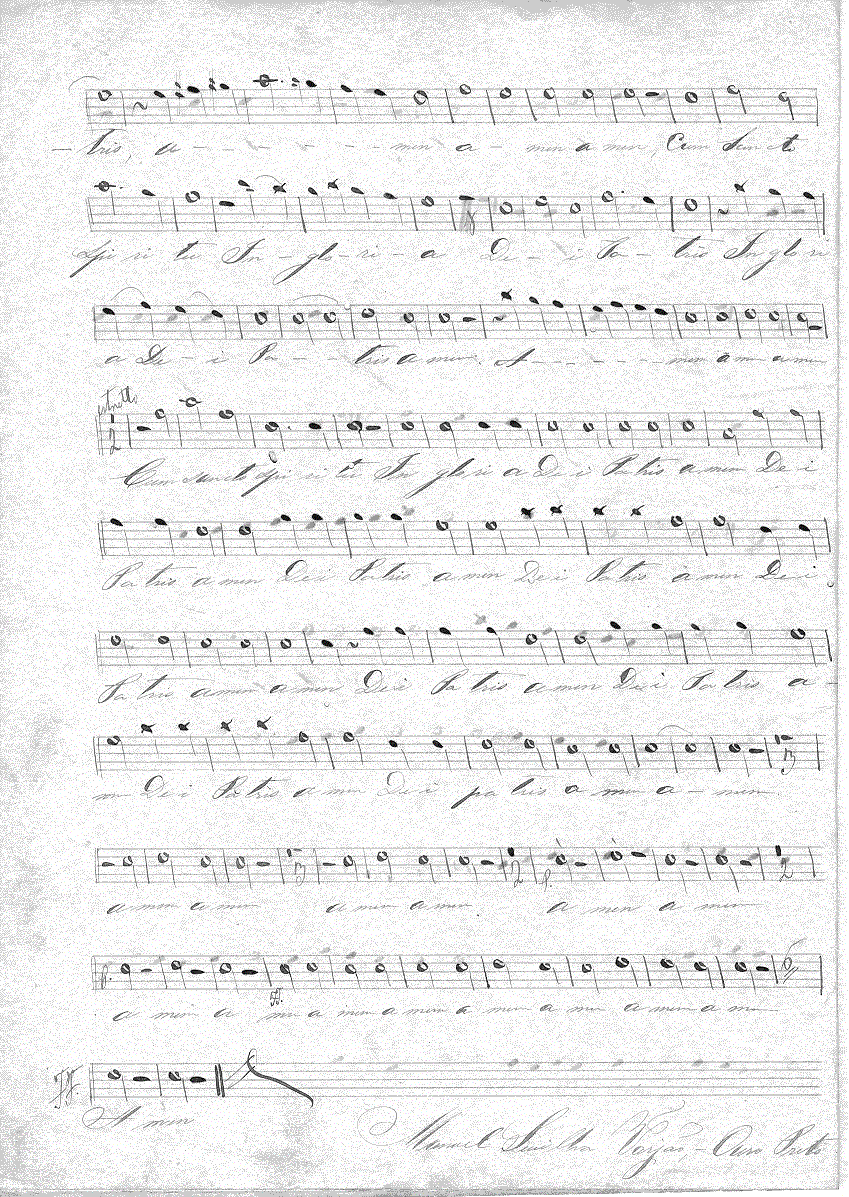 - tris, a - - - - - - - men a - men a men, Cum Sancto
Spi ri tu In - glo - ri - a De - i Pa - tris In glo ri
a De - i Pa - - tris a men. A - - - - - - men a men a men
2
Cum sancto Spi ri tu In glo ri a De i Pa tris a men De i
Pa tris a men De i Pa tris a men De i Pa tris a men De i
Pa tris a men a men De i Pa tris a men De i Pa tris a -
men De i Pa tris a men De i pa tris a men a - men.
3
a men a men a men a men. a men a men
3 2 p. 2
p.
a men a men a men a men a men a men a men a men
ff.
ff.
A men
Manuel
Ouro Preto